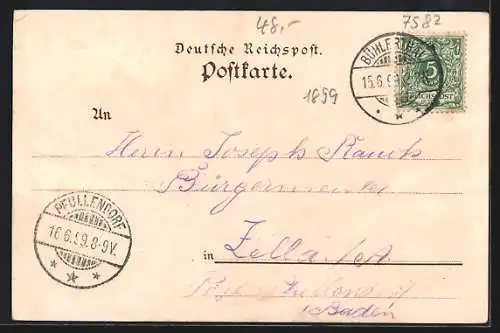 48,-
7582
Deutsche Reichspost.
Postkarte.
1899
BÜHLERTHAL
15.6.99
5
REICHSPOST
An
Herrn Joseph Rauch
Bürgermeister
in Zell a/A
Pfullendorf
Baden
PFULLENDORF
16.6.99.8-9V.